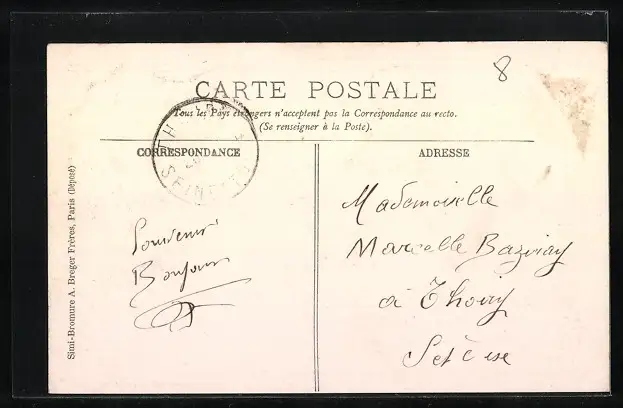 8
CARTE POSTALE
Tous les Pays étrangers n'acceptent pas la Correspondance au recto.
(Se renseigner à la Poste).
CORRESPONDANCE
ADRESSE
Simi-Bromure A. Breger Frères, Paris (Déposé)
Souvenir
Bonjour
Mademoiselle
Marcelle
à Thoiry
Set Oise